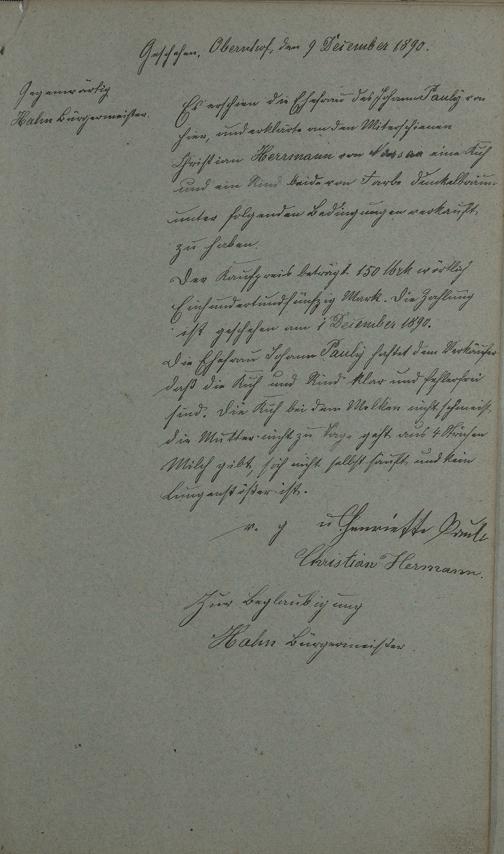 Geschehen, Obernhof, den 9 Dezember 1890.
Gegenwärtig
Hahn Bürgermeister.
Es erschien die Ehefrau des Johann Pauly von
hier, und erklärte an den Miterschienen
Christian Herrmann von Nassau eine Kuh
und ein Rind beide von Farbe dunkelbraun
unter folgenden Bedingungen verkauft,
zu haben.
Der Kaufpreis beträgt 150 Mrk wörtlich
Einhundertundfünfzig Mark. Die Zahlung
ist geschehen am 1 Dezember 1890.
Die Ehefrau Johann Pauly haftet dem Verkäufer
daß die Kuh und Rind klar und fehlerfrei
sind. Die Kuh bei dem Melken nicht schmeißt,
die Mutter nicht zu Tage geht, aus 4 Strichen
Milch gibt, sich nicht selbst säuft, und kein
Zungenstößer ist.
v. g u Henriette Pauly
Christian Hermann.
Zur Beglaubigung
Hahn Bürgermeister.